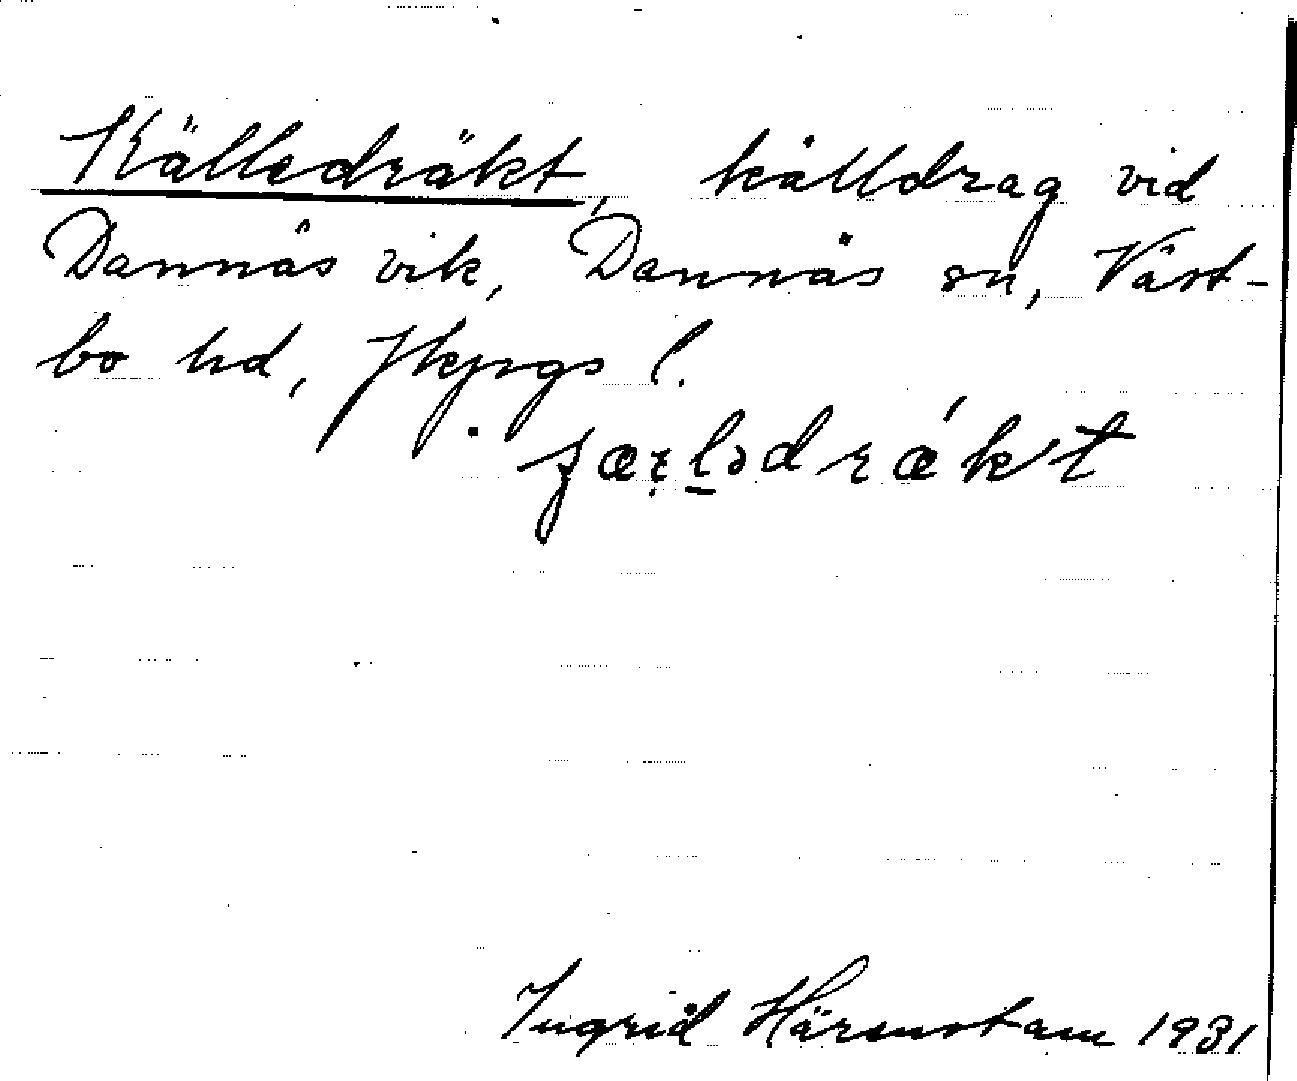 Källedräkt, källdrag vid
Dannäs vik, Dannäs sn, Väst-
bo hd, Jkpgs l.
Ingrid Härenstam 1931